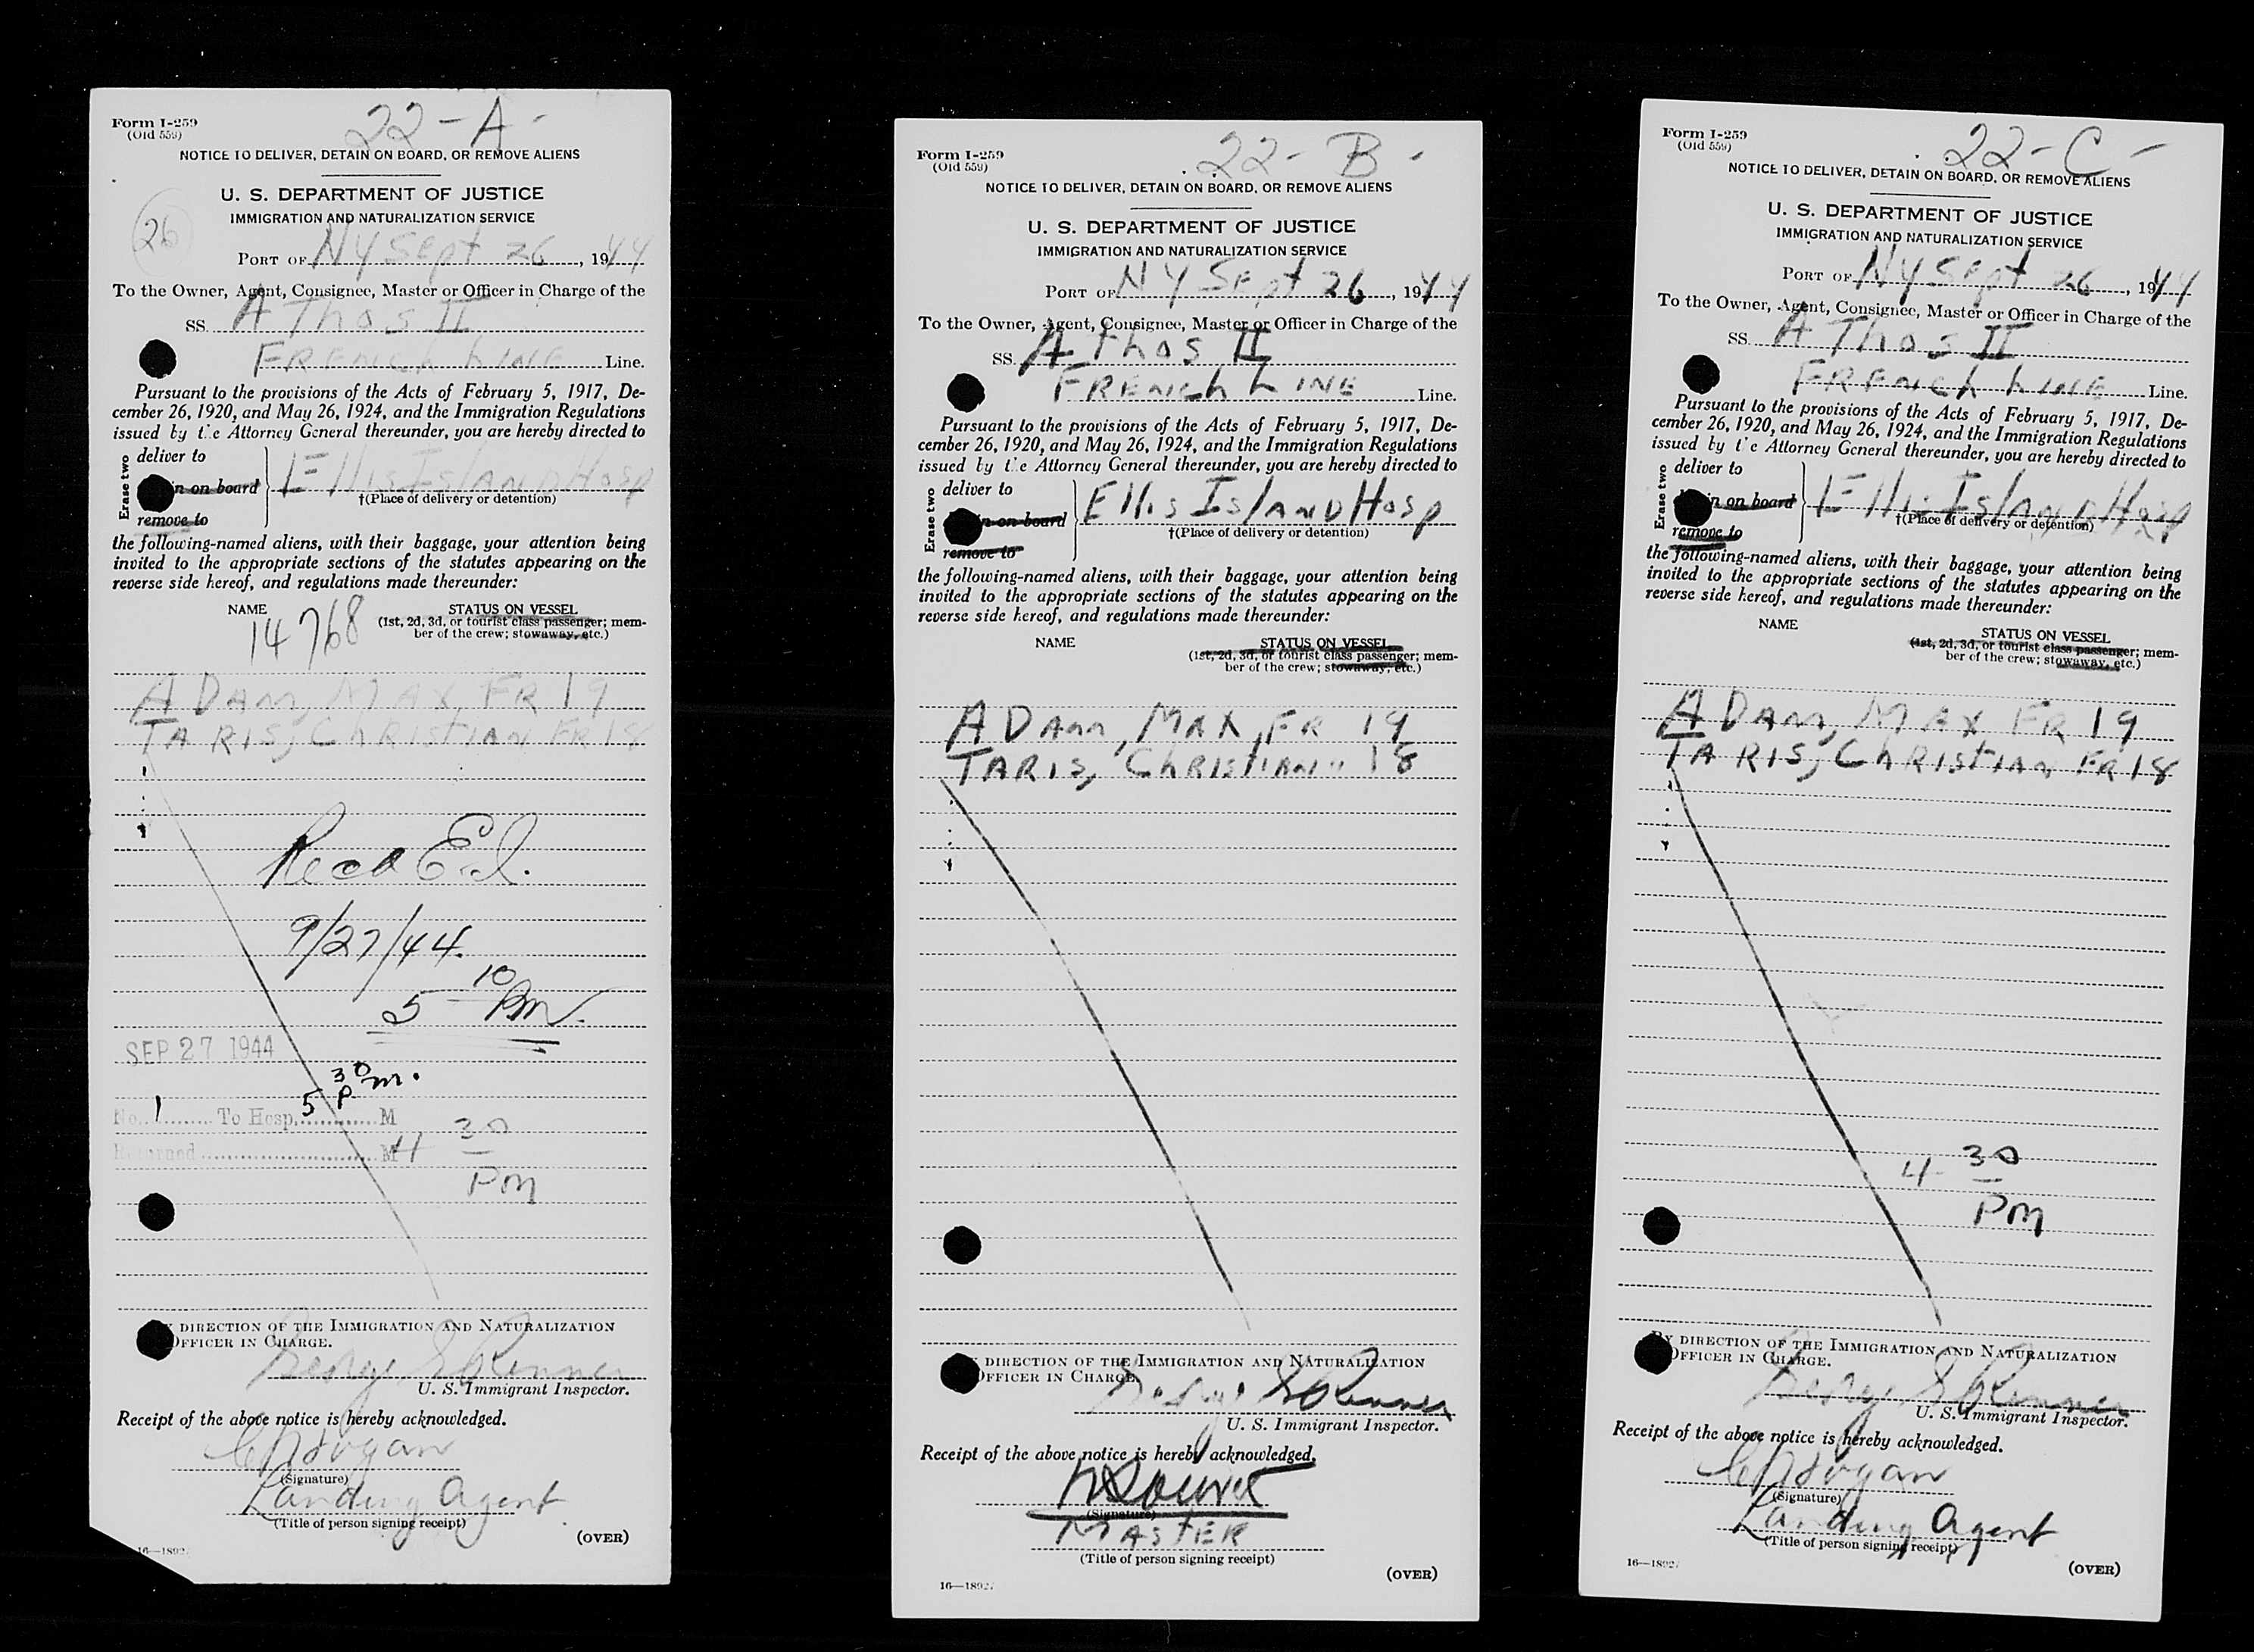 22-A-
Form I-259
(Old 559)
NOTICE TO DELIVER, DETAIN ON BOARD, OR REMOVE ALIENS
U. S. DEPARTMENT OF JUSTICE
IMMIGRATION AND NATURALIZATION SERVICE
26
PORT OF NY Sept 26, 1944
To the Owner, Agent, Consignee, Master or Officer in Charge of the
SS. AThos II
FRENch LINE Line.
Pursuant to the provisions of the Acts of February 5, 1917, De-
cember 26, 1920, and May 26, 1924, and the Immigration Regulations
issued by the Attorney General thereunder, you are hereby directed to
Erase two
deliver to
n on board
remove to
Ellis Island Hosp
†(Place of delivery or detention)
the following-named aliens, with their baggage, your attention being
invited to the appropriate sections of the statutes appearing on the
reverse side hereof, and regulations made thereunder:
NAME
STATUS ON VESSEL
(1st, 2d, 3d, or tourist class passenger; mem-
ber of the crew; stowaway, etc.)
14768
ADAM, MAX, FR 19
TARIS, ChRIStIAN FR 18
Recd E.I.
9/27/44.
5 10 Pm.
SEP 27 1944
5 30 P m.
No. 1 To Hosp. M
Returned M
4 30 Pm
DIRECTION OF THE IMMIGRATION AND NATURALIZATION
OFFICER IN CHARGE.
George
U. S. Immigrant Inspector.
Receipt of the above notice is hereby acknowledged.
(Signature)
Landing Agent
(Title of person signing receipt)
(OVER)
22-B-
Form I-259
(Old 559)
NOTICE TO DELIVER, DETAIN ON BOARD, OR REMOVE ALIENS
U. S. DEPARTMENT OF JUSTICE
IMMIGRATION AND NATURALIZATION SERVICE
PORT OF NY Sept 26, 1944
To the Owner, Agent, Consignee, Master or Officer in Charge of the
SS. AThos II
FRENch LINE Line.
Pursuant to the provisions of the Acts of February 5, 1917, De-
cember 26, 1920, and May 26, 1924, and the Immigration Regulations
issued by the Attorney General thereunder, you are hereby directed to
Erase two
deliver to
n on board
remove to
Ellis Island Hosp
†(Place of delivery or detention)
the following-named aliens, with their baggage, your attention being
invited to the appropriate sections of the statutes appearing on the
reverse side hereof, and regulations made thereunder:
NAME
STATUS ON VESSEL
(1st, 2d, 3d, or tourist class passenger; mem-
ber of the crew; stowaway, etc.)
ADAM, MAX, FR 19
TARIS, ChRIStIAN " 18
DIRECTION OF THE IMMIGRATION AND NATURALIZATION
OFFICER IN CHARGE
George
U. S. Immigrant Inspector.
Receipt of the above notice is hereby acknowledged.
(Signature)
MAStER
(Title of person signing receipt)
(OVER)
22-C-
Form I-259
(Old 559)
NOTICE TO DELIVER, DETAIN ON BOARD, OR REMOVE ALIENS
U. S. DEPARTMENT OF JUSTICE
IMMIGRATION AND NATURALIZATION SERVICE
PORT OF NY Sept 26, 1944
To the Owner, Agent, Consignee, Master or Officer in Charge of the
SS. AThos II
FRENch LINE Line.
Pursuant to the provisions of the Acts of February 5, 1917, De-
cember 26, 1920, and May 26, 1924, and the Immigration Regulations
issued by the Attorney General thereunder, you are hereby directed to
Erase two
deliver to
n on board
remove to
Ellis Island Hosp
†(Place of delivery or detention)
the following-named aliens, with their baggage, your attention being
invited to the appropriate sections of the statutes appearing on the
reverse side hereof, and regulations made thereunder:
NAME
STATUS ON VESSEL
(1st, 2d, 3d, or tourist class passenger; mem-
ber of the crew; stowaway, etc.)
ADAM, MAX FR 19
TARIS, ChRIStIAN FR 18
4 30 Pm
BY DIRECTION OF THE IMMIGRATION AND NATURALIZATION
OFFICER IN CHARGE.
George
U. S. Immigrant Inspector.
Receipt of the above notice is hereby acknowledged.
(Signature)
Landing Agent
(Title of person signing receipt)
(OVER)